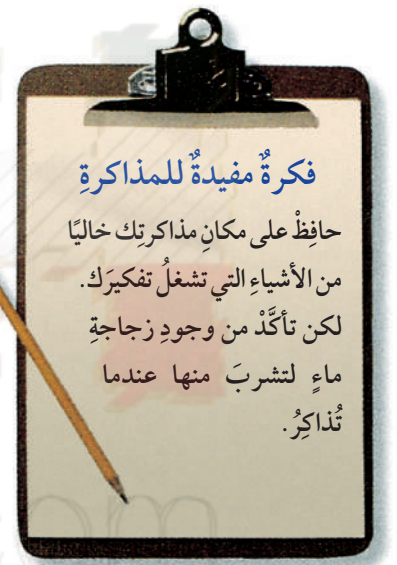 فكرةٌ مفيدةٌ للمذاكرةِ
حافِظْ على مكانِ مذاكرتِك خاليًا
من الأشياءِ التي تشغلُ تفكيرَك.
لكن تأكَّدْ من وجودِ زجاجةِ
ماءٍ لتشربَ منها عندما
تُذاكِرُ.